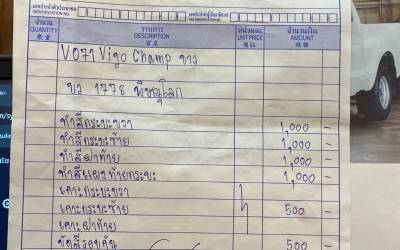 เลขประจำตัวประชาชน
IDENTIFICATION NO.
เลขประจำตัวผู้เสียภาษี
จำนวน รายการ หน่วยละ จำนวนเงิน
QUANTITY DESCRIPTION UNIT PRICE AMOUNT
數量 貨名 單價 銀額
V071 Vigo Champ ขาว
บว 1778 พิษณุโลก
ทำสีกระบะขวา 1,000 -
ทำสีกระบะซ้าย 1,000 -
ทำสีฝาท้าย 1,000 -
ทำสีแผงท้ายกระบะ 1,000 -
เคาะกระบะขวา
เคาะกระบะซ้าย 500 -
เคาะฝาท้าย
ขัดสีรอบคัน 500 -